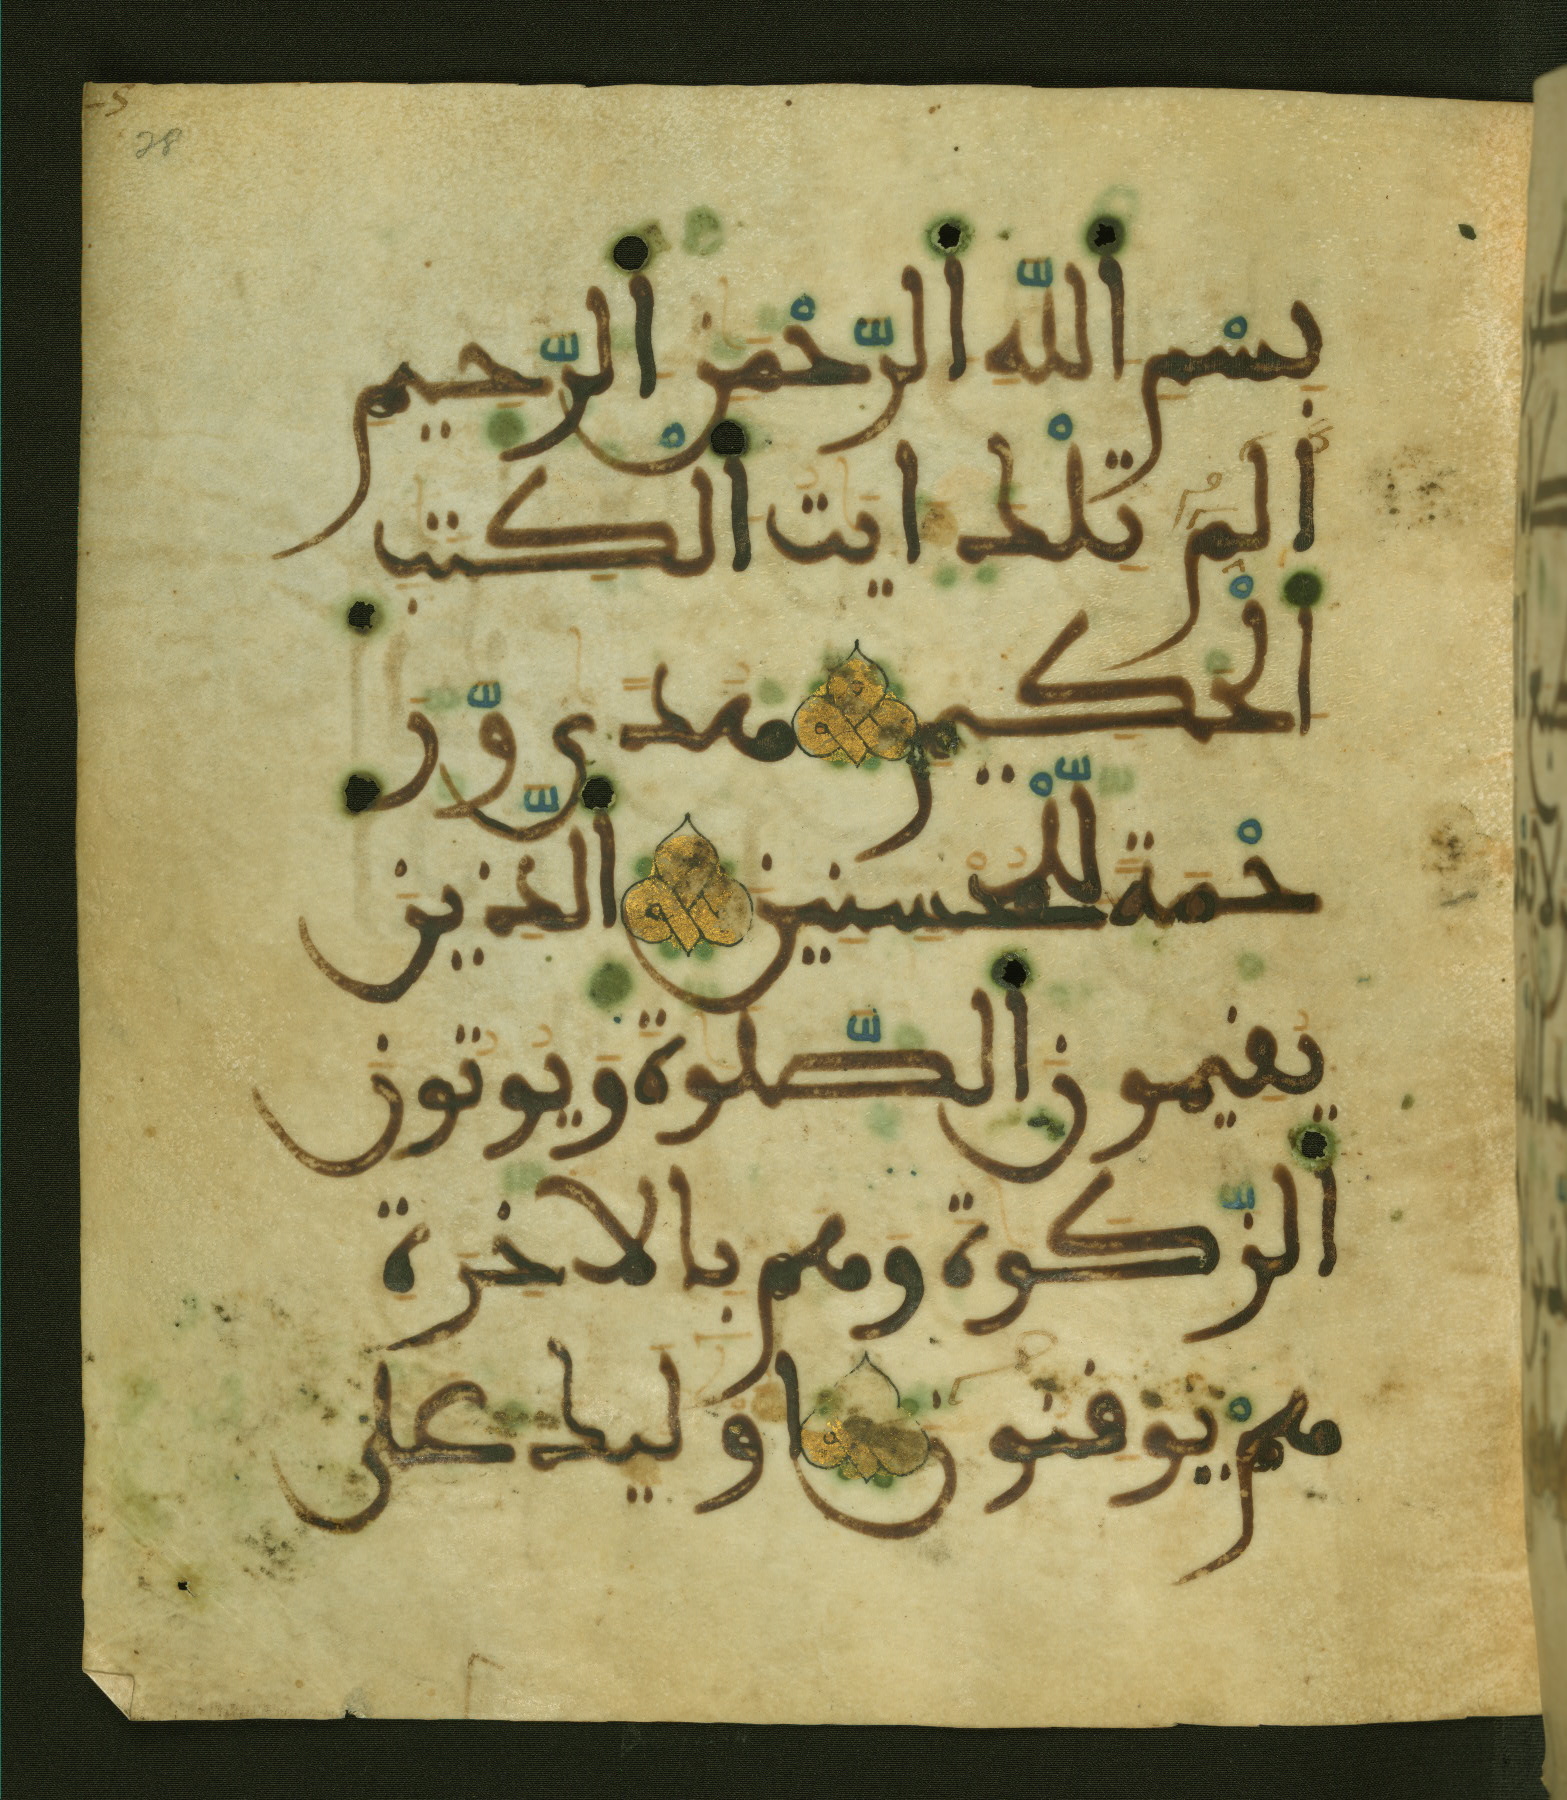 28
بسم الله الرحمن الرحيم
الم تلك ايت الكتب
الحكيم هدى ور
حمة للمحسنين الذين
يقيمون الصلوة ويوتون
الزكوة وهم بالاخرة
هم يوقنون اوليك على